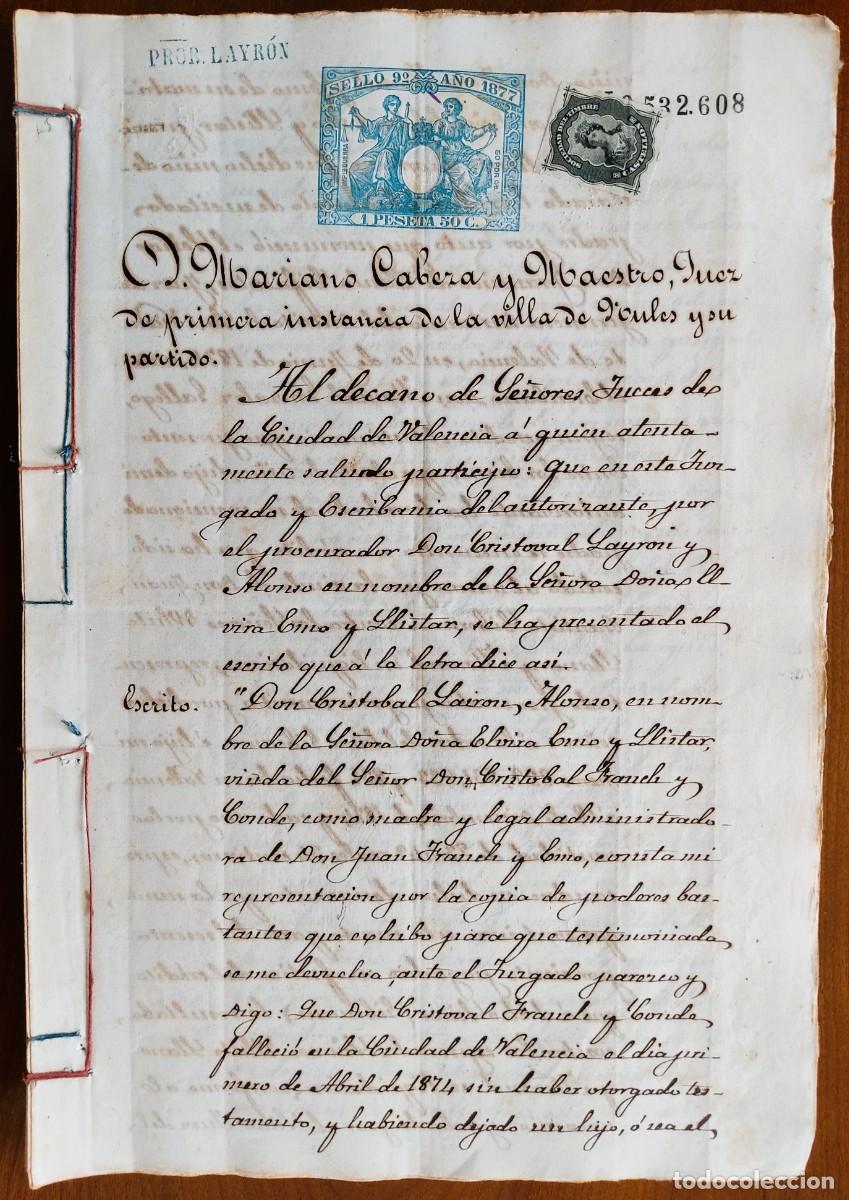 PROR. LAYRÓN
SELLO 9º AÑO 1877
IMPTO GUERRA
50 POR 00
1 PESETA 50 C.
SOCIEDAD DEL TIMBRE
532.608
D. Mariano Cabeza y Maestro, Juez
de primera instancia de la villa de Nules y su
partido.
Al decano de Señores Jueces de
la Ciudad de Valencia á quien atenta-
mente saludo participo: Que en este Juz-
gado y Escribania del autorizante, por
el procurador Don Cristoval Layron y
Alonso en nombre de la Señora Doña El-
vira Emo y Llistar, se ha presentado el
escrito que á la letra dice así.
Escrito. "Don Cristobal Lairon, Alonso, en nom-
bre de la Señora Doña Elvira Emo y Llistar,
viuda del Señor Don Cristobal Franch y
Conde, como madre y legal administrado-
ra de Don Juan Franch y Emo, consta mi
representacion por la copia de poderes bas-
tantes que exhibo para que testimoniada
se me devuelva, ante el Juzgado parezco y
Digo: Que Don Cristoval Franch y Conde
falleció en la Ciudad de Valencia el dia pri-
mero de Abril de 1874 sin haber otorgado tes-
tamento, y habiendo dejado un hijo, ó sea el
todocoleccion